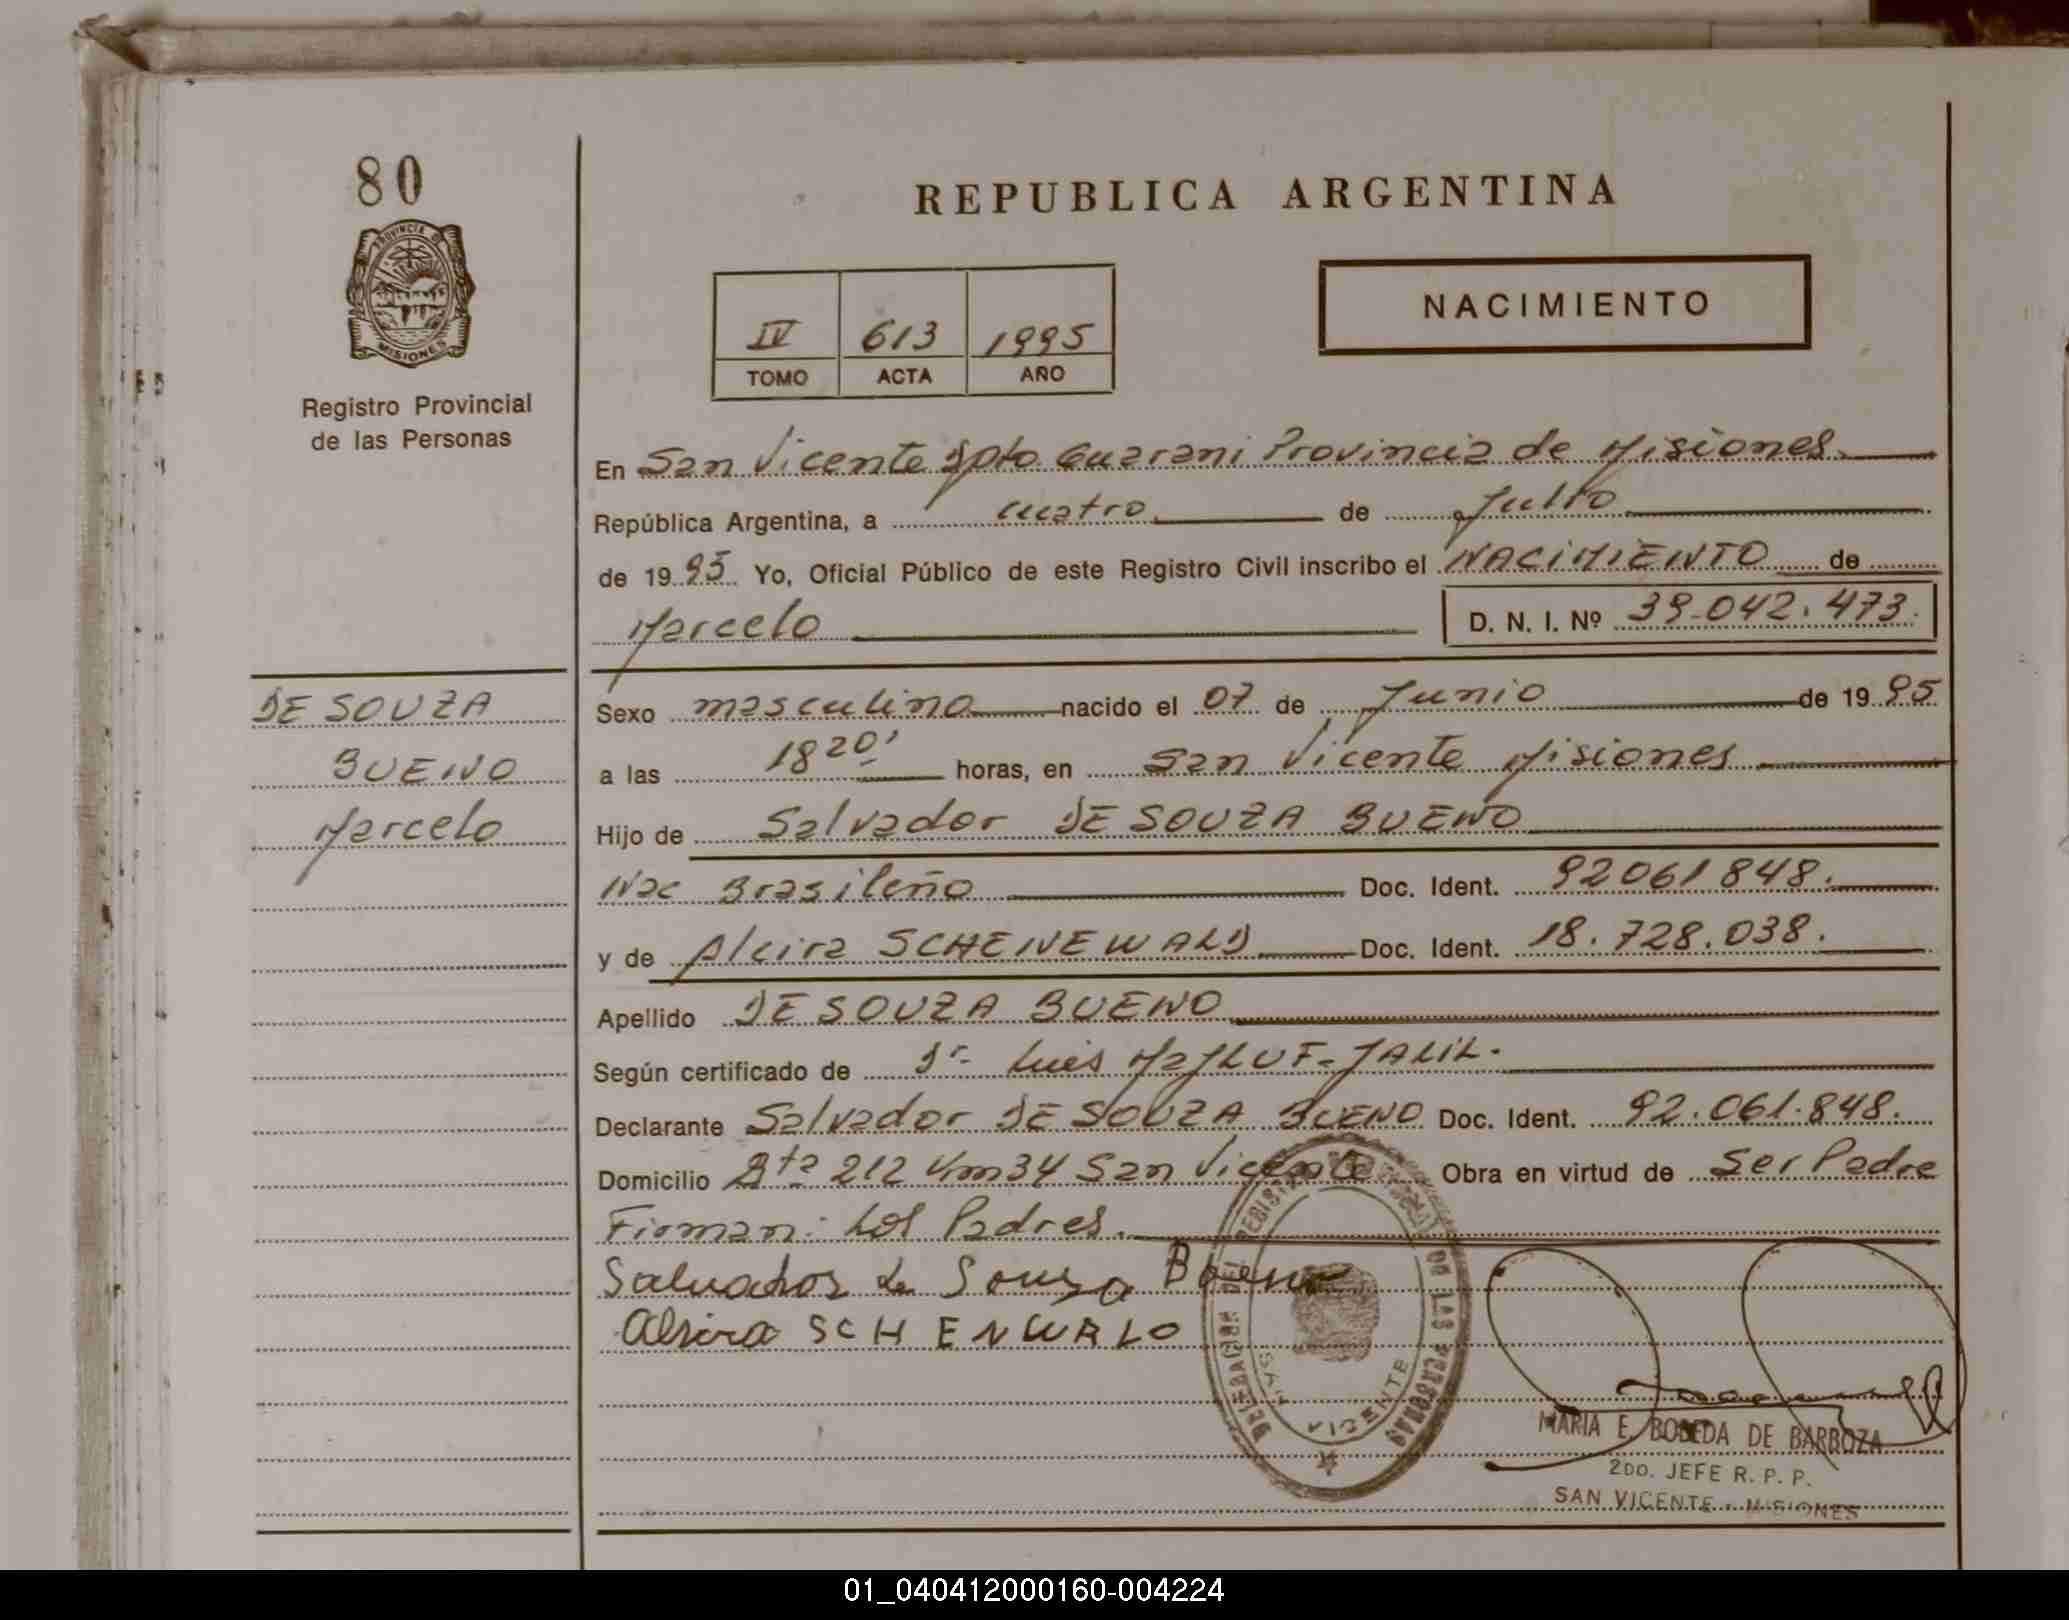 80
PROVINCIA DE
MISIONES
Registro Provincial
de las Personas
DE SOUZA
BUENO
Marcelo
REPUBLICA ARGENTINA
IV 613 1995
TOMO ACTA AÑO
NACIMIENTO
En San Vicente Dpto. Guarani Provincia de Misiones.
República Argentina, a cuatro de Julio
de 1995 Yo, Oficial Público de este Registro Civil inscribo el NACIMIENTO de
Marcelo D. N. I. Nº 39.042.473.
Sexo masculino nacido el 07 de Junio de 1995
a las 18 20' horas, en San Vicente Misiones
Hijo de Salvador DE SOUZA BUENO
Nac Brasileña Doc. Ident. 92061848.
y de Alcira SCHENEWALD Doc. Ident. 18.728.038.
Apellido DE SOUZA BUENO
Según certificado de Dr. Luis MaJLUF-JALIL.
Declarante Salvador DE SOUZA BUENO Doc. Ident. 92.061.848.
Domicilio Rta 212 Km 34 San Vicente Obra en virtud de Ser Padre
Firman: Los Padres.
Salvador de Souza Bueno
Alsira SCHENWALD
DELEGACION DEL REGISTRO PROVINCIAL DE LAS PERSONAS
SAN VICENTE
MARIA E. BOBEDA DE BARBOZA
2DO. JEFE R. P. P.
SAN VICENTE - MISIONES
01_040412000160-004224